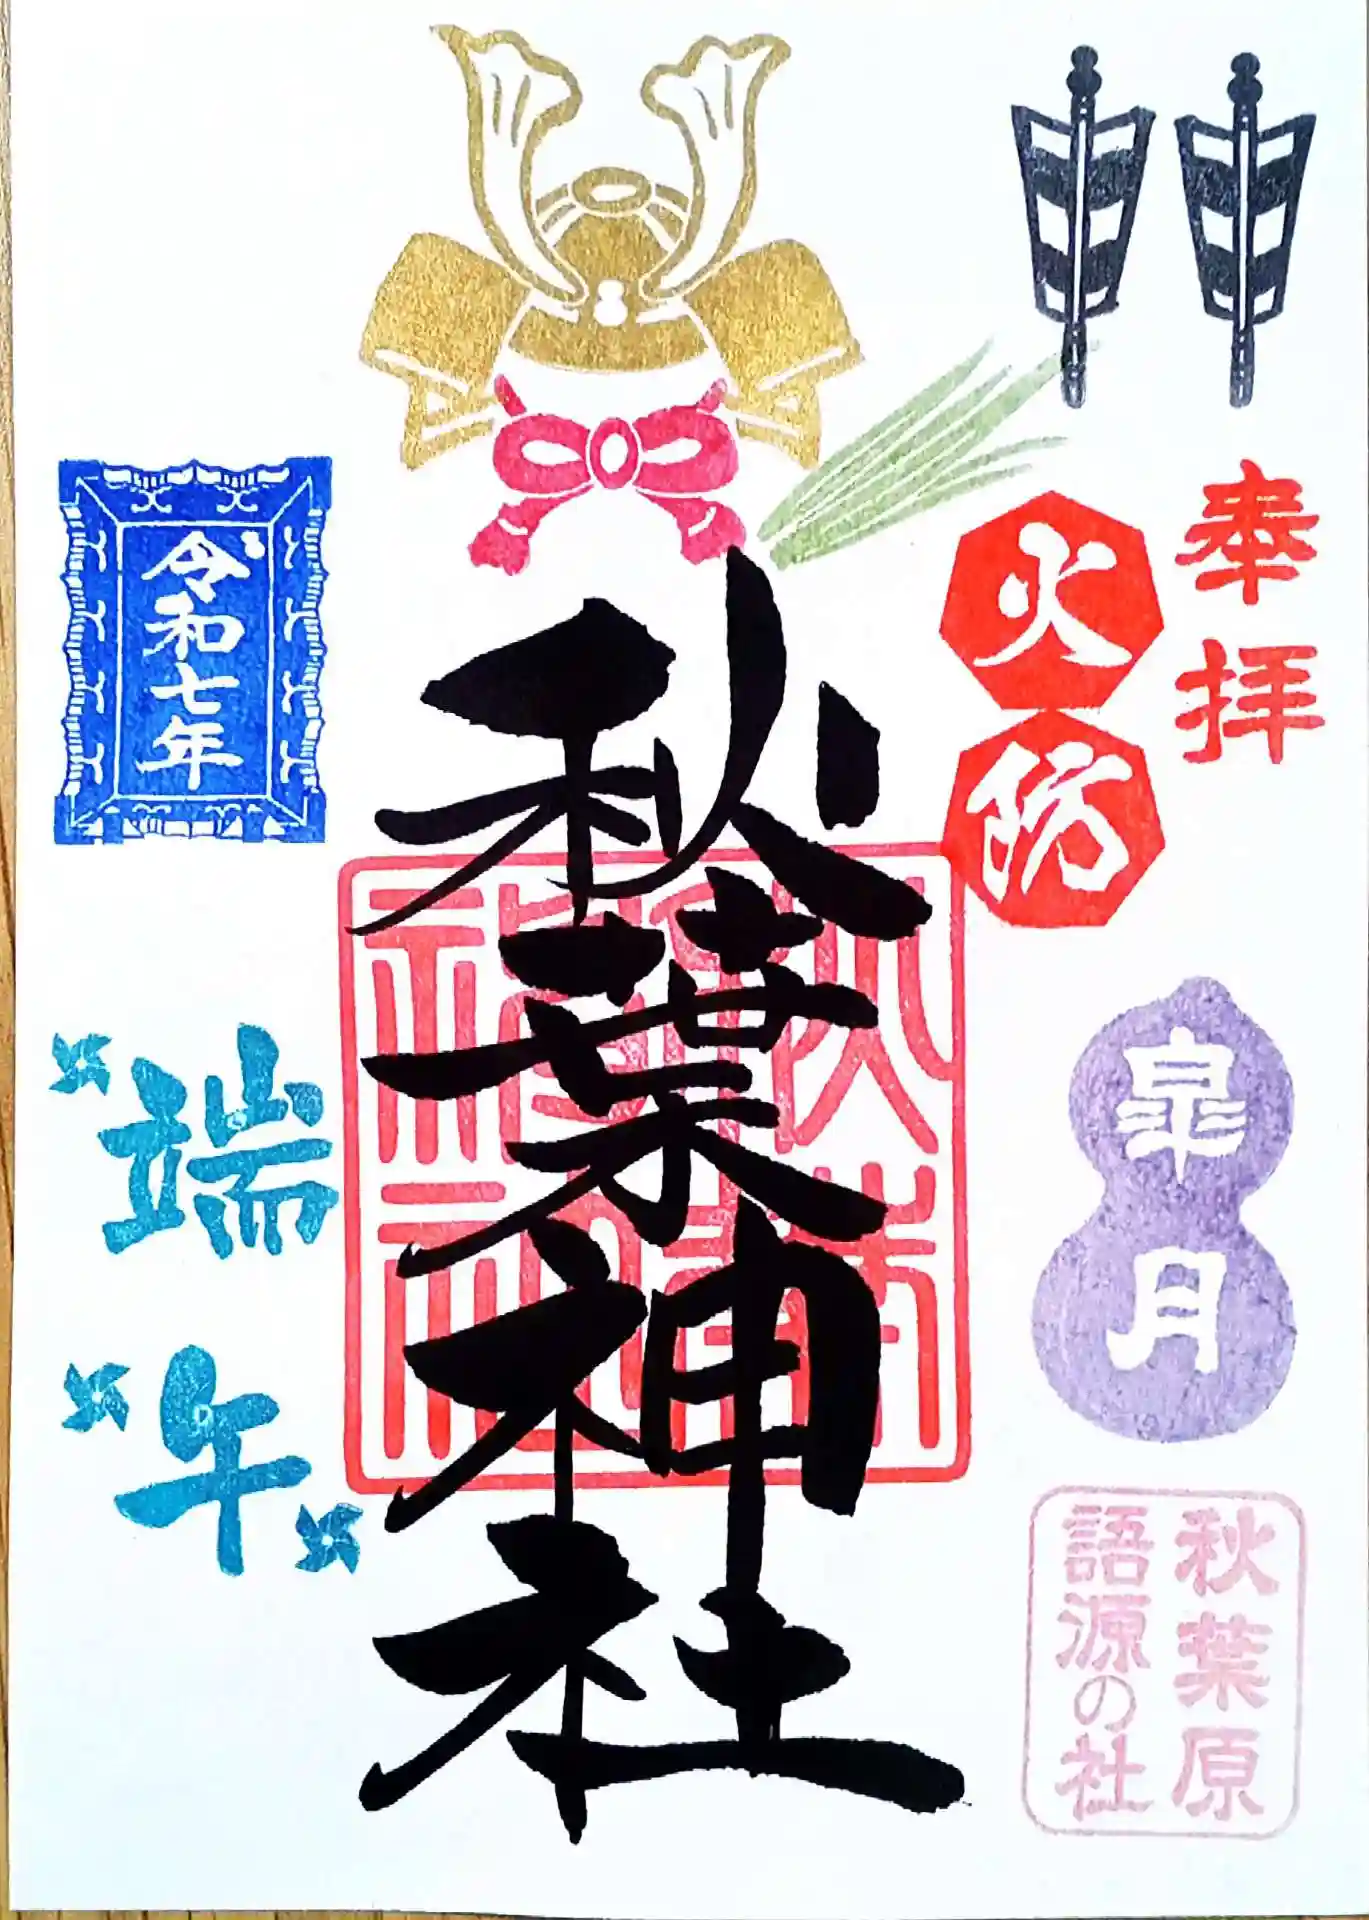 奉拝
火防
皐月
秋葉原
語源の社
秋葉神社
秋葉
神社
令和七年
端午